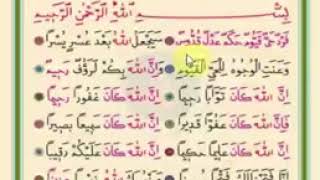 بِسْمِ اللّٰهِ الرَّحْمٰنِ الرَّحِيْمِ
فَرْدٌ حَيٌّ قَيُّومٌ حَكَمٌ عَدْلٌ قُدُّوسٌ سَيَجْعَلُ اللّٰهُ بَعْدَ عُسْرٍ يُسْرًا
وَعَنَتِ الْوُجُوهُ لِلْحَيِّ الْقَيُّومِ وَاِنَّ اللّٰهَ بِكُمْ لَرَؤُفٌ رَحِيمٌ
اِنَّ اللّٰهَ كَانَ تَوَّابًا رَحِيمًا اِنَّ اللّٰهَ كَانَ غَفُورًا رَحِيمًا
اِنَّ اللّٰهَ كَانَ عَفُوًّا قَدِيرًا اِنَّ اللّٰهَ كَانَ سَمِيعًا بَصِيرًا
اِنَّ اللّٰهَ كَانَ عَلِيمًا حَكِيمًا اِنَّ اللّٰهَ كَانَ عَلَيْكُمْ رَقِيبًا